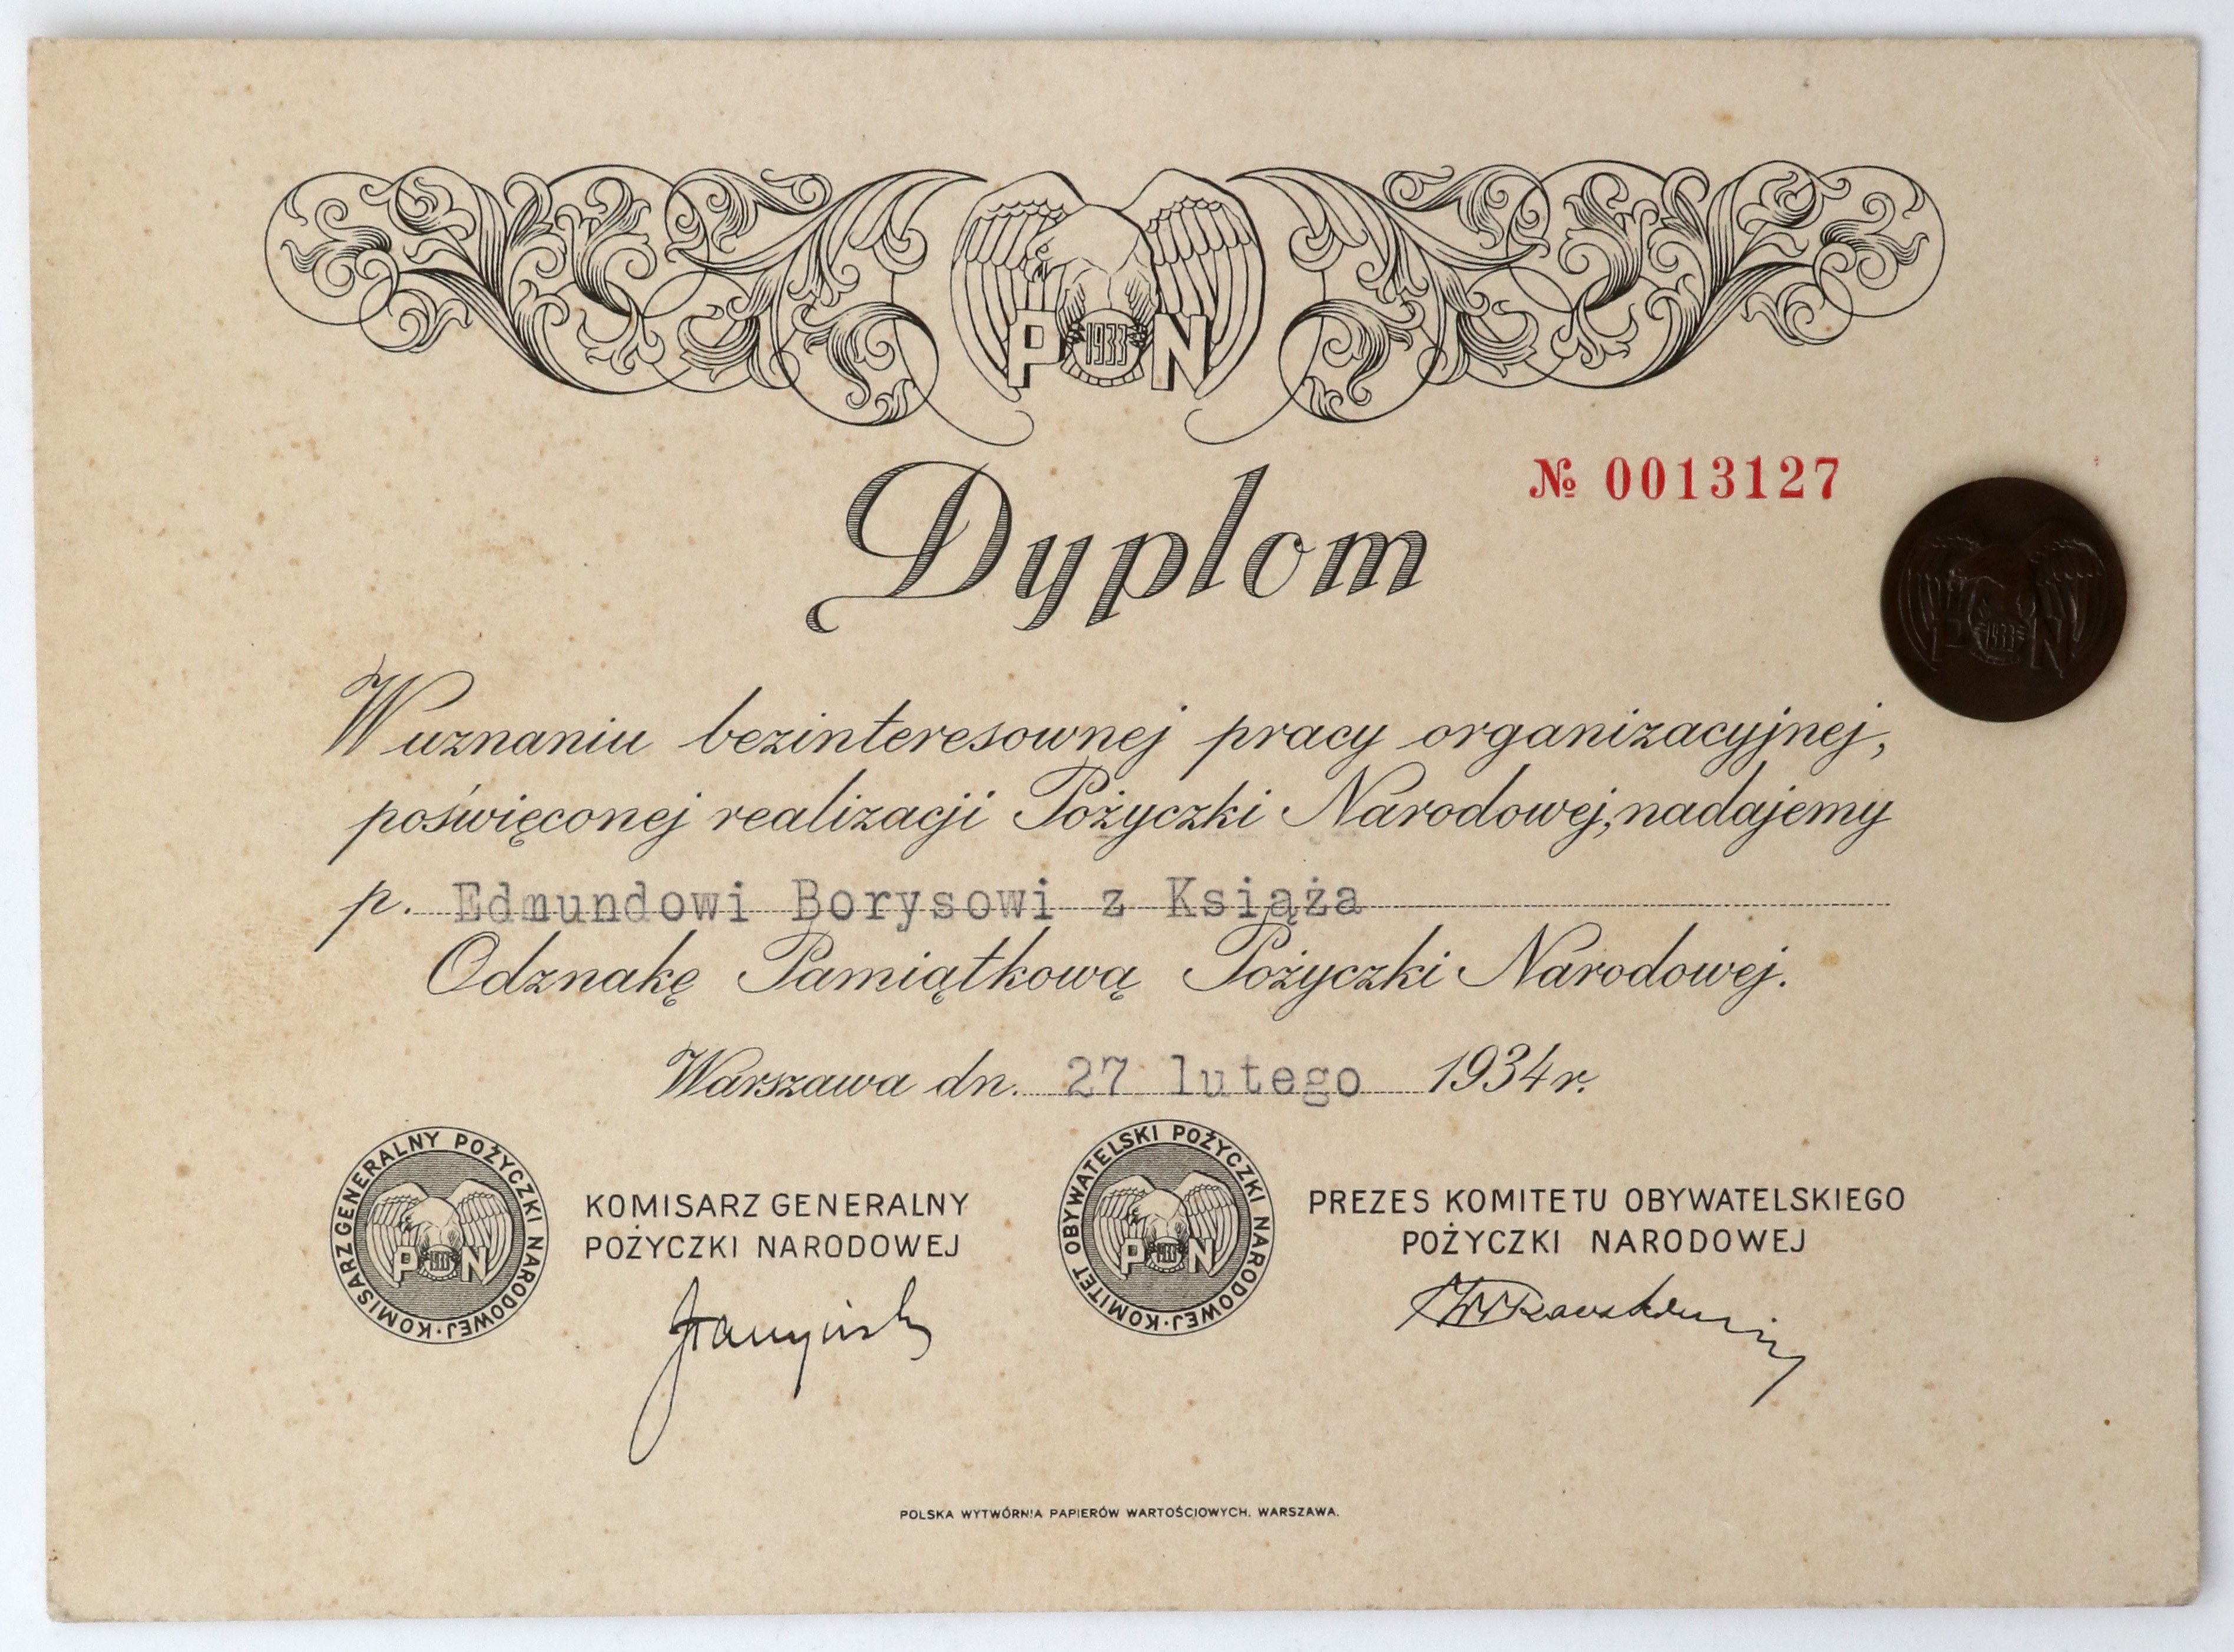 P 1933 N
Dyplom
№ 0013127
P 1933 N
W uznaniu bezinteresownej pracy organizacyjnej,
poświęconej realizacji Pożyczki Narodowej, nadajemy
p. Edmundowi Borysowi z Książa
Odznakę Pamiątkową Pożyczki Narodowej.
Warszawa dn. 27 lutego 1934 r.
KOMISARZ GENERALNY POŻYCZKI NARODOWEJ
P 1933 N
KOMISARZ GENERALNY
POŻYCZKI NARODOWEJ
KOMITET OBYWATELSKI POŻYCZKI NARODOWEJ
P 1933 N
PREZES KOMITETU OBYWATELSKIEGO
POŻYCZKI NARODOWEJ
POLSKA WYTWÓRNIA PAPIERÓW WARTOŚCIOWYCH. WARSZAWA.